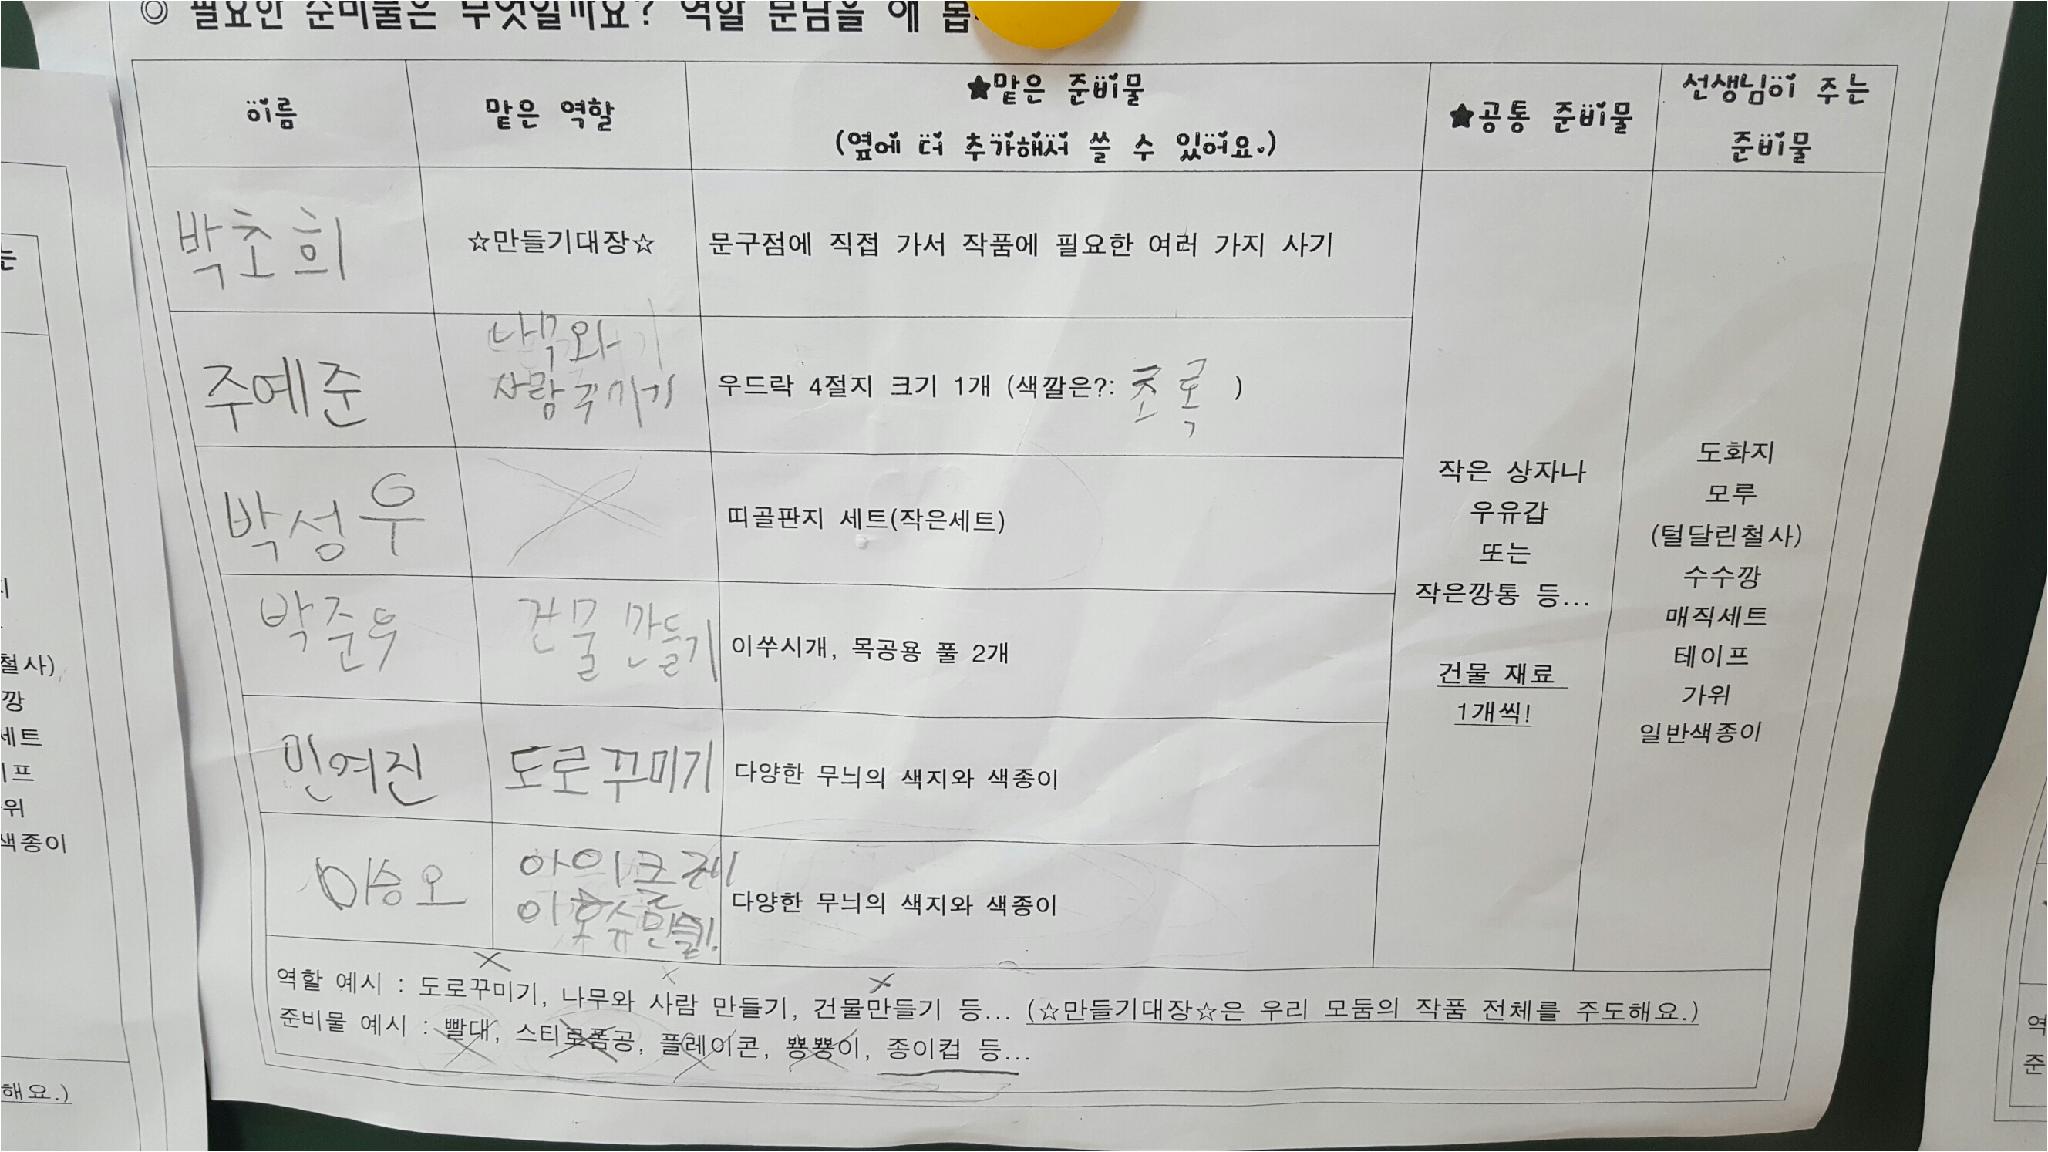 ◎ 필요한 준비물은 무엇일까요? 역할 분담을 해 봅
이름
맡은 역할
★맡은 준비물
(옆에 더 추가해서 쓸 수 있어요.)
★공통 준비물
선생님이 주는
준비물
박초희
☆만들기대장☆
문구점에 직접 가서 작품에 필요한 여러 가지 사기
주예준
나무와
사람 꾸미기
우드락 4절지 크기 1개 (색깔은?: 초록 )
박성우
띠골판지 세트(작은세트)
박준우
건물 만들기
이쑤시개, 목공용 풀 2개
민여진
도로꾸미기
다양한 무늬의 색지와 색종이
이승오
다양한 무늬의 색지와 색종이
작은 상자나
우유갑
또는
작은깡통 등...
건물 재료
1개씩!
도화지
모루
(털달린철사)
수수깡
매직세트
테이프
가위
일반색종이
역할 예시 : 도로꾸미기, 나무와 사람 만들기, 건물만들기 등... (☆만들기대장☆은 우리 모둠의 작품 전체를 주도해요.)
준비물 예시 : 빨대, 스티로폼공, 플레이콘, 뿅뿅이, 종이컵 등...
철사),
깡
세트
이프
위
색종이
해요.)